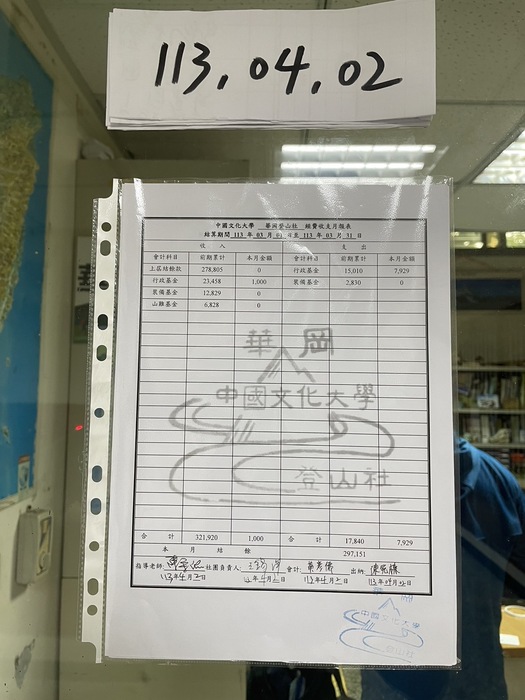 113.04.02
中國文化大學 華岡登山社 經費收支月報表
結算期間 113 年 03 月 01 日至 113 年 03 月 31 日
收 入 支 出
會計科目 前期累計 本月金額 會計科目 前期累計 本月金額
上屆結餘款 278,805 0 行政基金 15,010 7,929
行政基金 23,458 1,000 裝備基金 2,830 0
裝備基金 12,829 0
山難基金 6,828 0
華岡
中國文化大學
登山社
合 計 321,920 1,000 合 計 17,840 7,929
本 月 結 餘 297,151
指導老師: 社團負責人: 會計: 出納:
113年4月2日 113年4月2日 113年4月2日 113年04月02日
中國文化大學
登山社